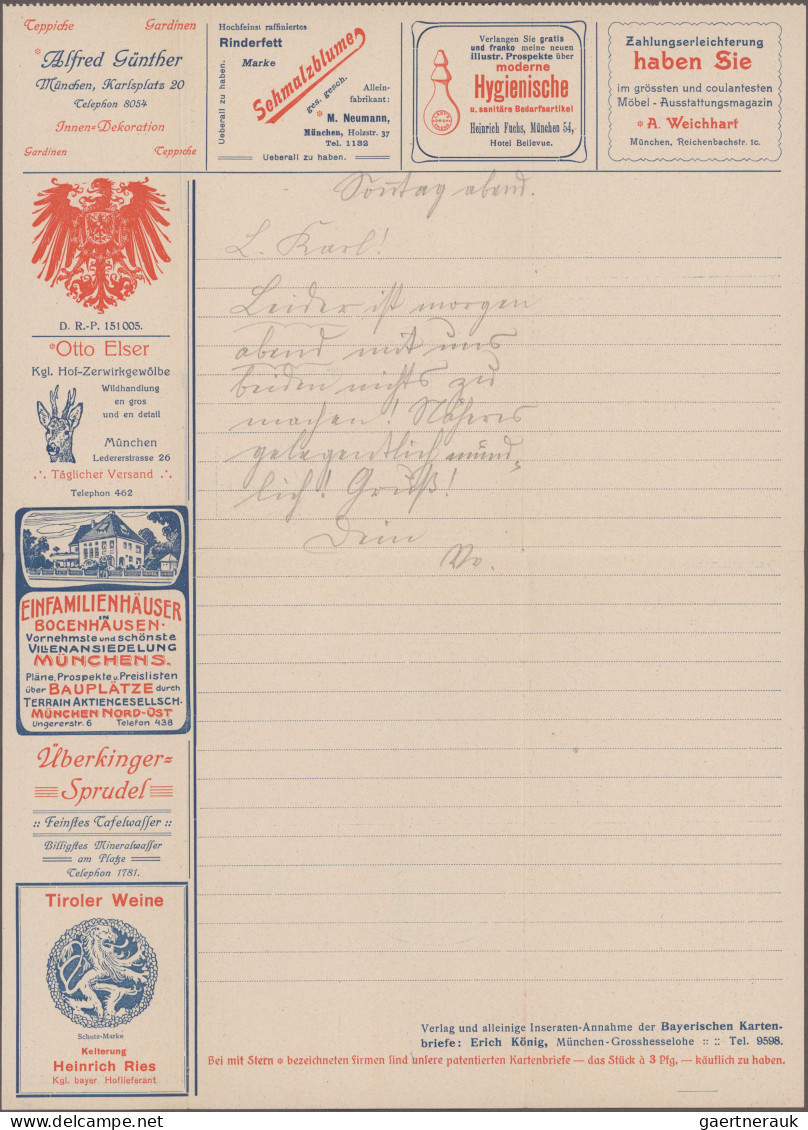 Teppiche Gardinen
*Alfred Günther
München, Karlsplatz 20
Telephon 8054
Innen=Dekoration
Gardinen Teppiche
Hochfeinst raffiniertes
Rinderfett
Marke
Ueberall zu haben.
Schmalzblume
ges. gesch.
Allein-
fabrikant:
* M. Neumann,
München, Holzstr. 37
Tel. 1132
Ueberall zu haben.
Verlangen Sie gratis
und franko meine neuen
illustr. Prospekte über
moderne
Hygienische
u. sanitäre Bedarfsartikel
Heinrich Fuchs, München 54,
Hotel Bellevue.
Zahlungserleichterung
haben Sie
im grössten und coulantesten
Möbel-Ausstattungsmagazin
* A. Weichhart
München, Reichenbachstr. 1c.
D. R.-P. 151005.
*Otto Elser
Kgl. Hof-Zerwirkgewölbe
Wildhandlung
en gros
und en detail
München
Ledererstrasse 26
∴ Täglicher Versand ∴
Telephon 462
EINFAMILIENHÄUSER
IN
BOGENHAUSEN·
Vornehmste und schönste
VILLENANSIEDELUNG
MÜNCHENS.
Pläne, Prospekte u. Preislisten
über BAUPLÄTZE durch
TERRAIN AKTIENGESELLSCH.
MÜNCHEN NORD-OST
Ungererstr. 6 Telefon 438
Überkinger=
Sprudel
:: Feinstes Tafelwasser ::
Billigstes Mineralwasser
am Platze
Telephon 1781.
Tiroler Weine
Schutz-Marke
Kelterung
Heinrich Ries
Kgl. bayer Hoflieferant
Sonntag abend.
L. Karl!
Leider ist morgen
abend mit uns
beiden nichts zu
machen! Näheres
gelegentlich münd=
lich! Gruß!
Dein
Verlag und alleinige Inseraten-Annahme der Bayerischen Karten-
briefe: Erich König, München-Grosshesselohe :: :: Tel. 9598.
Bei mit Stern * bezeichneten Firmen sind unsere patentierten Kartenbriefe — das Stück à 3 Pfg. — käuflich zu haben.
gaertnerauk